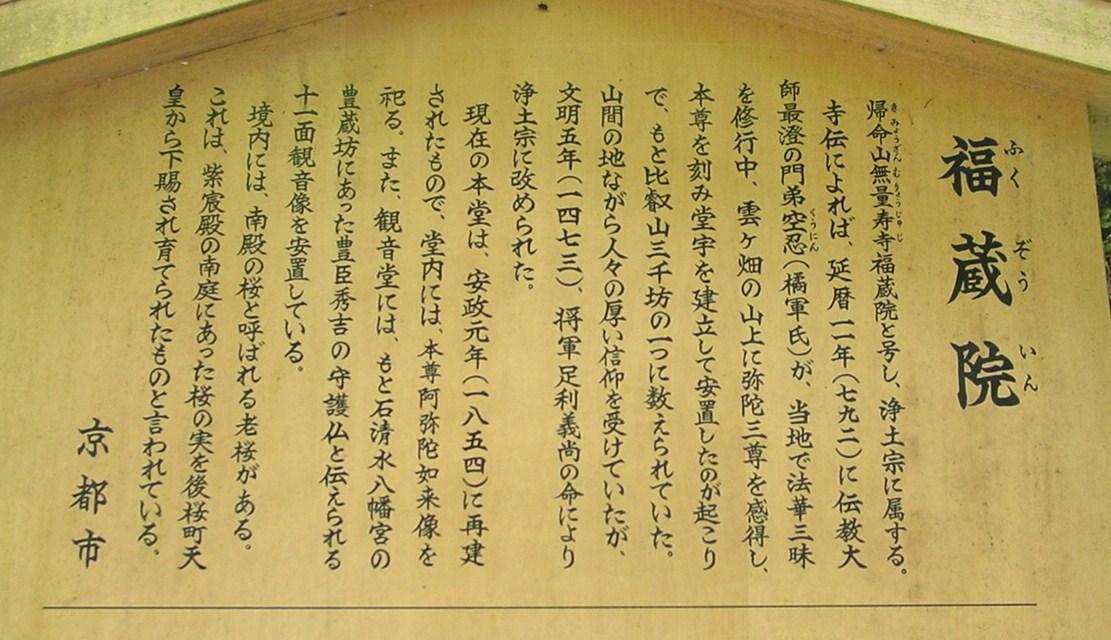 福蔵院
ふくぞういん
帰命山無量寿寺福蔵院と号し、浄土宗に属する。
きみょうざんむりょうじゅじ
寺伝によれば、延暦一一年（七九二）に伝教大
師最澄の門弟空忍（橘軍氏）が、当地で法華三昧
くうにん
を修行中、雲ヶ畑の山上に弥陀三尊を感得し、
本尊を刻み堂宇を建立して安置したのが起こり
で、もと比叡山三千坊の一つに数えられていた。
山間の地ながら人々の厚い信仰を受けていたが、
文明五年（一四七三）、将軍足利義尚の命により
浄土宗に改められた。
現在の本堂は、安政元年（一八五四）に再建
されたもので、堂内には、本尊阿弥陀如来像を
祀る。また、観音堂には、もと石清水八幡宮の
豊蔵坊にあった豊臣秀吉の守護仏と伝えられる
十一面観音像を安置している。
境内には、南殿の桜と呼ばれる老桜がある。
これは、紫宸殿の南庭にあった桜の実を後桜町天
皇から下賜され育てられたものと言われている。
京都市